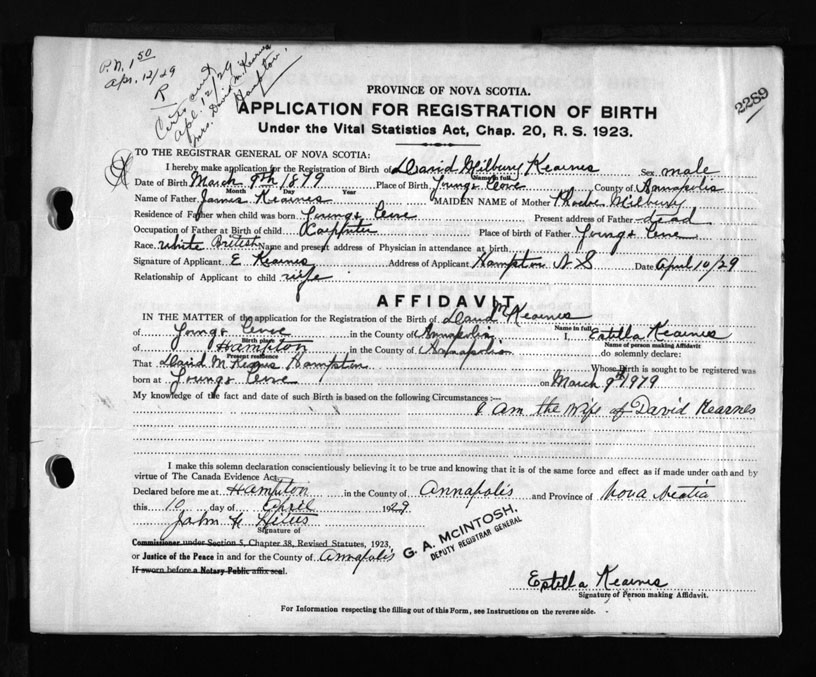 P.N. 1 50
Apr. 12/29
R
Certs sent
Apl. 12/29
Mrs. David M. Kearnes
Hampton,
2289
PROVINCE OF NOVA SCOTIA.
APPLICATION FOR REGISTRATION OF BIRTH
Under the Vital Statistics Act, Chap. 20, R. S. 1923.
TO THE REGISTRAR GENERAL OF NOVA SCOTIA:
I hereby make application for the Registration of Birth of David Milbury Kearnes Sex male
Name in full
Date of Birth March 9th 1879 Place of Birth Youngs Cove County of Annapolis
Month Day Year
Name of Father James Kearnes MAIDEN NAME of Mother Phoebe Milbury
Residence of Father when child was born Youngs Cove Present address of Father dead
Occupation of Father at Birth of child Carpenter Place of birth of Father Youngs Cove
Race white British Name and present address of Physician in attendance at birth
Signature of Applicant E Kearnes Address of Applicant Hampton N S Date April 10/29
Relationship of Applicant to child wife
AFFIDAVIT
IN THE MATTER of the application for the Registration of the Birth of David M Kearnes
Name in full
of Youngs Cove in the County of Annapolis, I, Estella Kearnes
Birth place Name of person making Affidavit
of Hampton in the County of Annapolis do solemnly declare:
Present residence
That David M Kearnes Hampton Whose Birth is sought to be registered was
born at Youngs Cove on March 9th 1979
My knowledge of the fact and date of such Birth is based on the following Circumstances :—
I Am the wife of David Kearnes
I make this solemn declaration conscientiously believing it to be true and knowing that it is of the same force and effect as if made under oath and by
virtue of The Canada Evidence Act,
Declared before me at Hampton in the County of Annapolis and Province of Nova Scotia
this 10 day of April 1929
John
Signature of
Commissioner under Section 5, Chapter 38, Revised Statutes, 1923,
or Justice of the Peace in and for the County of Annapolis
If sworn before a Notary Public affix seal.
G. A. McINTOSH,
DEPUTY REGISTRAR GENERAL
Estella Kearnes
Signature of Person making Affidavit.
For Information respecting the filling out of this Form, see Instructions on the reverse side.